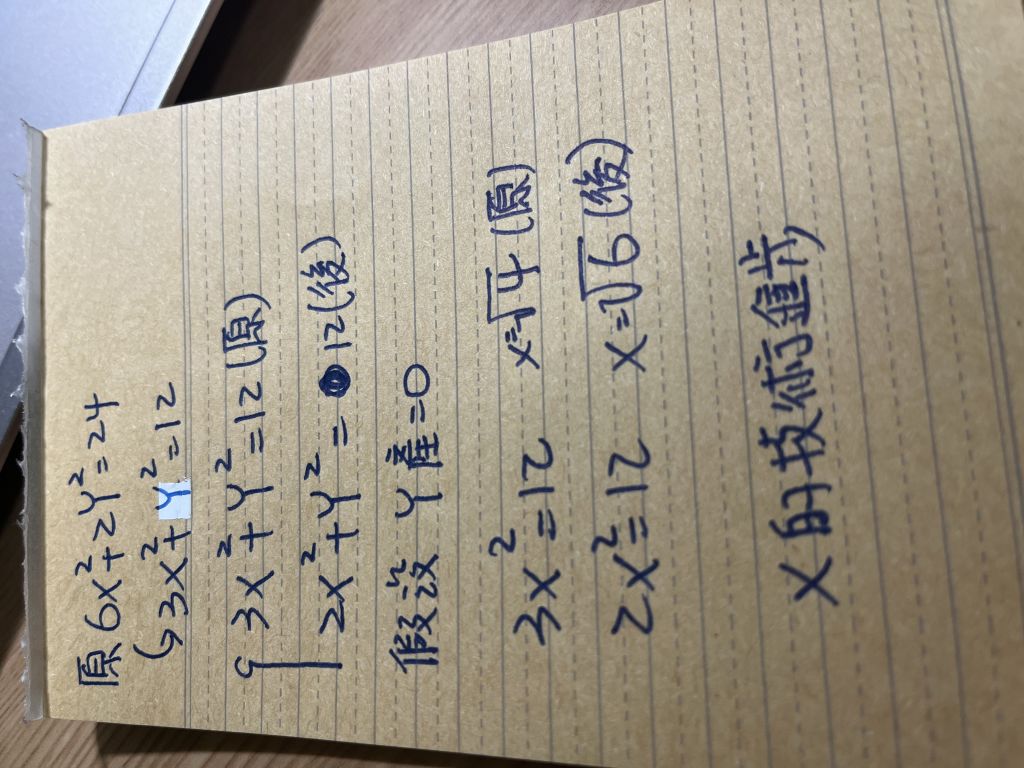 原 6x²+2Y²=24
↳3x²+Y²=12
3x²+Y²=12(原)
2x²+Y²=12(後)
假設 Y產=0
3x²=12 x=√4(原)
2x²=12 x=√6(後)
x的技術進步,